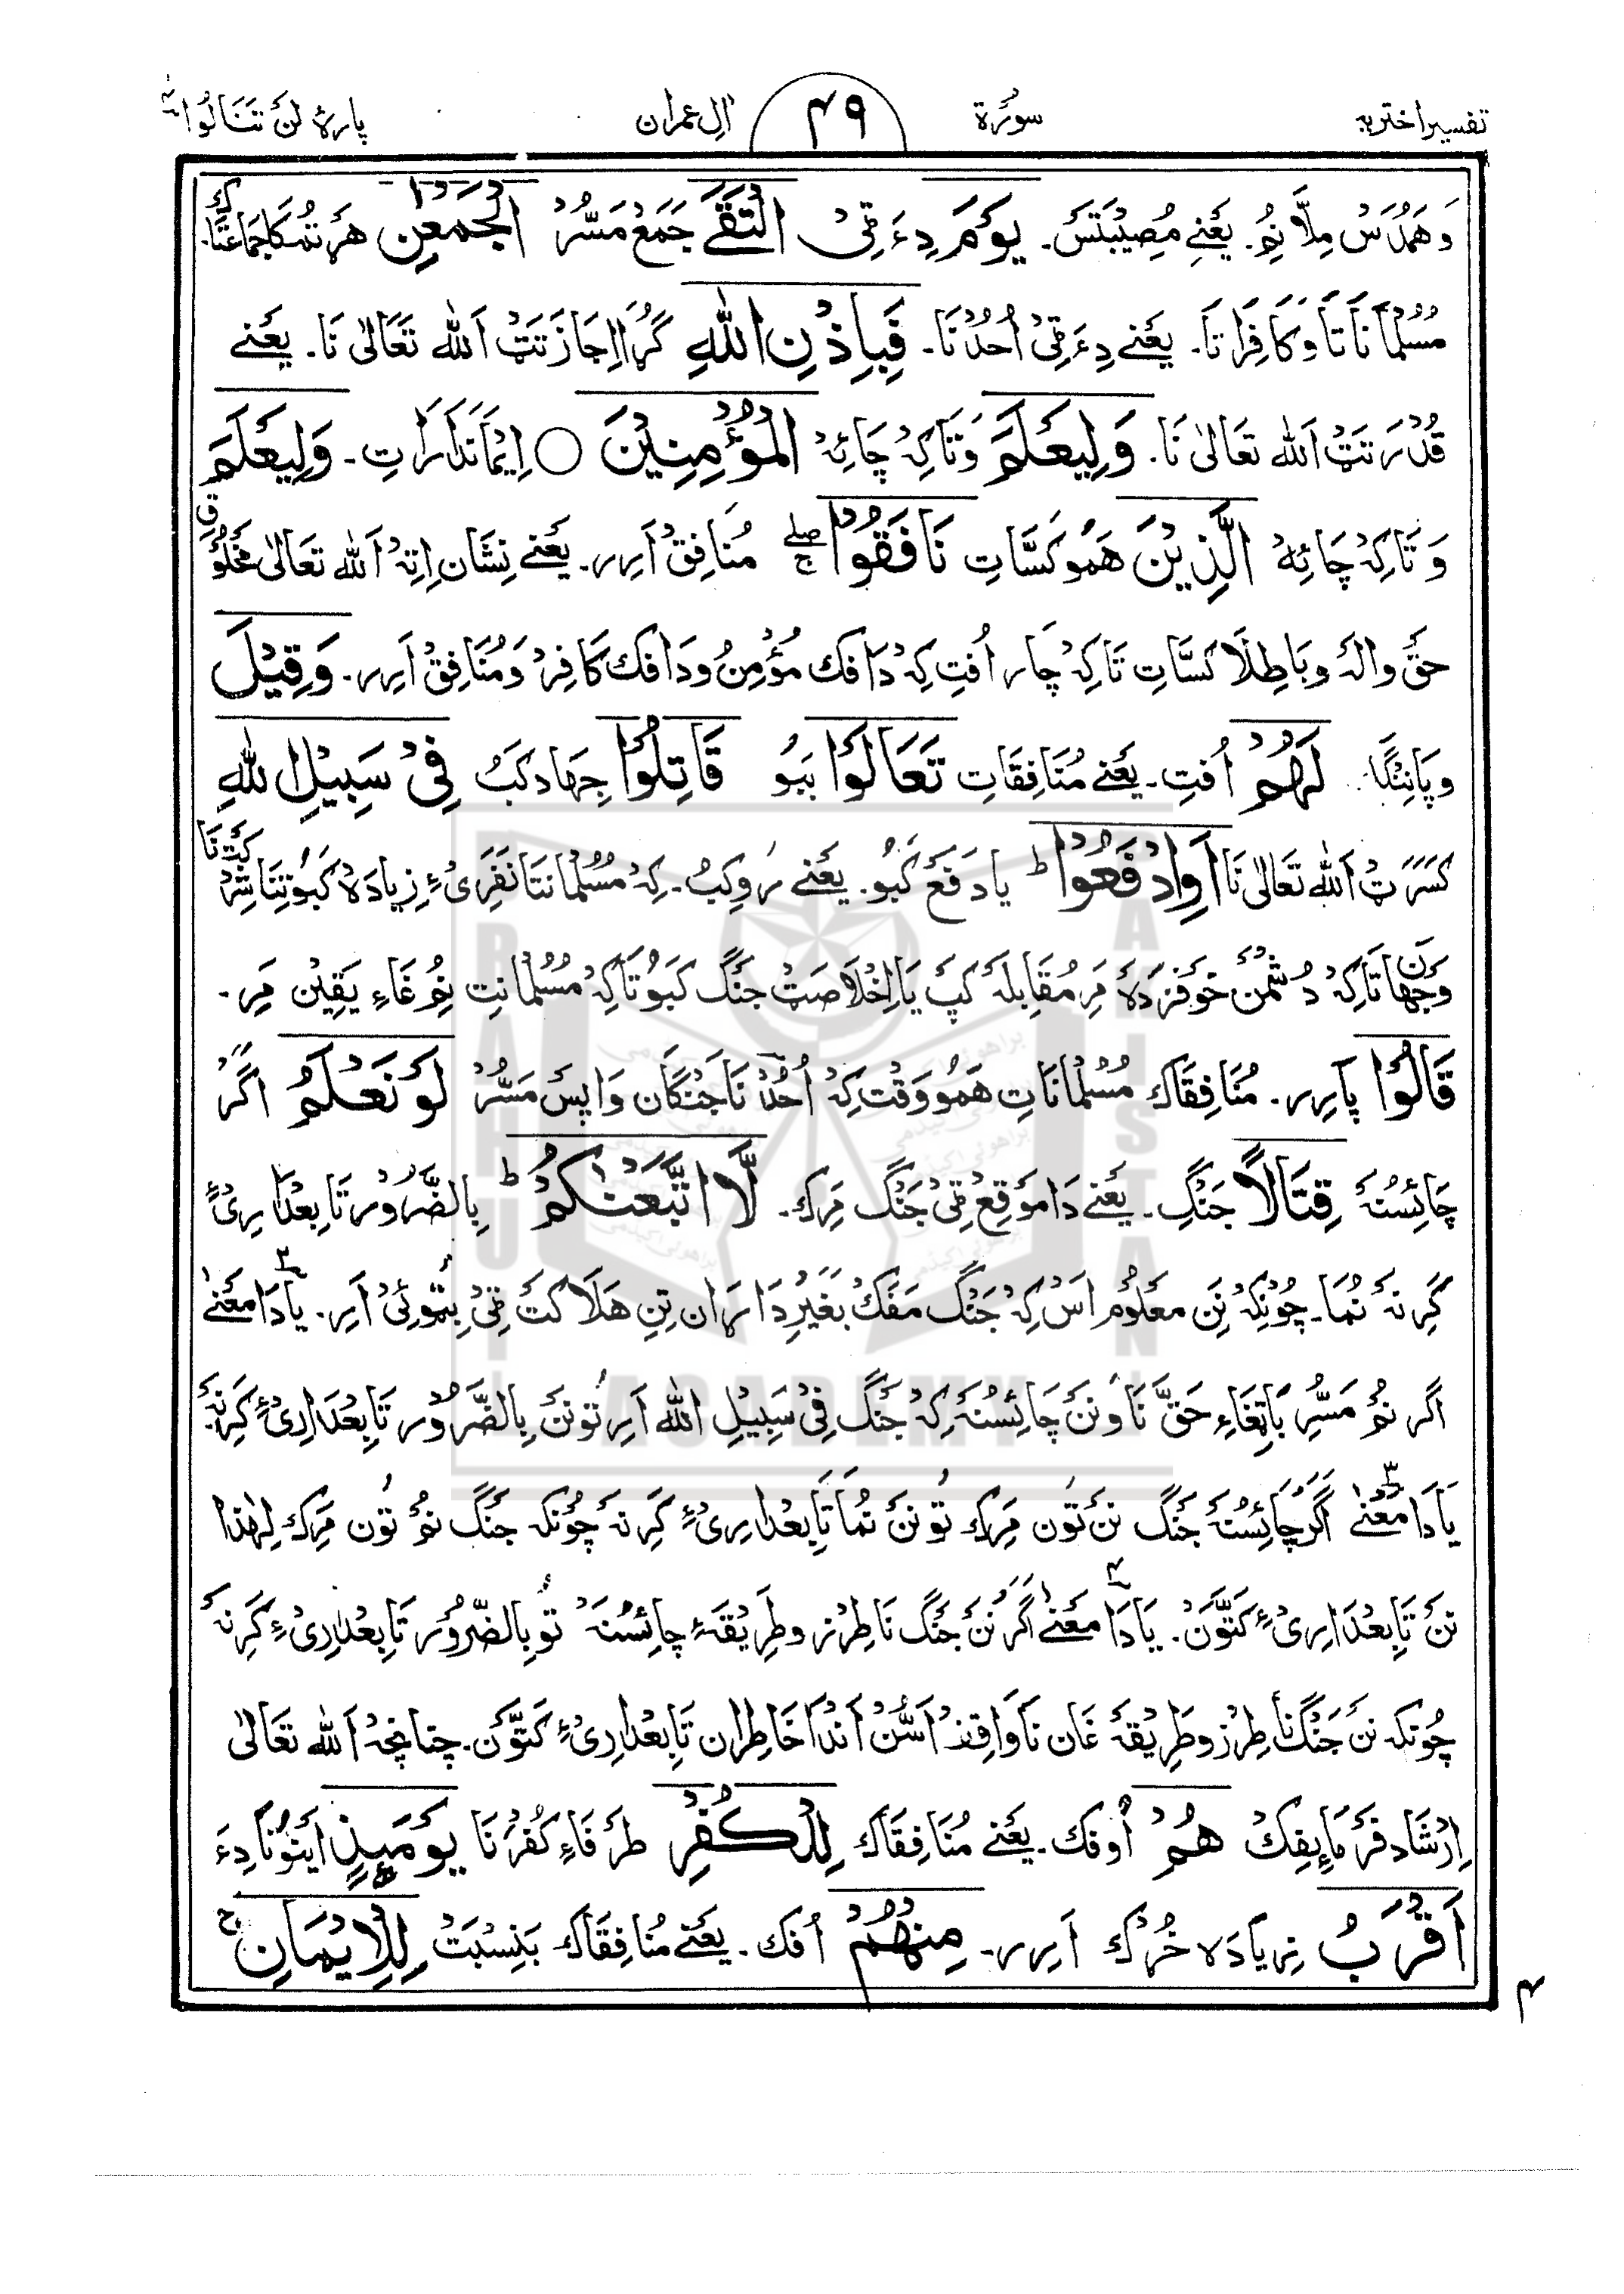 تفسیر اختریہ سورۃ ۴۹ اٰلِ عمران پارۂ لَنْ تَنَالُوا ۴
وَهَمُدُسْ مِلَّا نُمِ۔ یَعْنِے مُصِیْبَتَسْ۔ یَوْمَ دِءَ ٹِیْ الْتَقَے جَمَعْ مَسُّرْ الْجَمْعٰنِ هَر تُمکَا جَمَاعَتَّاک
مُسُلمَانَاتَا وَکَافِرَاتَا۔ یَعْنے دِءَ ٹِیْ اُحُدْنَا۔ فَبِاِذْنِ اللّٰهِ گُرَا اِجَازَتَٹْ اَللّٰہ تَعَالیٰ نَا۔ یَعْنے
قُدْرَتَٹْ اَللّٰہ تَعَالیٰ نَا۔ وَلِیَعْلَمَ وَتَاکِہْ چَائِہْ الْمُؤْمِنِیْنَ ○ اِیْمَانْدَارَاتِ۔ وَلِیَعْلَمَ
وَتَاکِہْ چَائِہْ الَّذِیْنَ هَمُو کَسَّاتِ نَافَقُوْا صلے ج مُنَافِقْ اَرِیر۔ یَعْنے نِشَان اِتِہْ اَللّٰہ تَعَالیٰ مَخْلُوقِ
حَقّ والَہ وبَاطِلَا کَسَّاتِ تَاکِہْ چَار اُفْتِ کِہْ دَافَک مُؤْمِنْ ودَافَک کَافِرْ وَمُنَافِقْ اَرِیر۔ وَقِیْلَ
وپَانِنْگَا۔ لَهُمْ اُفْتِ۔ یَعْنے مُنَافِقَاتِ تَعَالَوْا بَبُو قَاتِلُوْا جِهَاد کَبُ فِیْ سَبِیْلِ اللّٰهِ
کَسَرَٹْ اَللّٰہ تَعَالیٰ نَا اَوِادْفَعُوْا ط یَا دَفَعْ کَبُو۔ یَعْنے رَوکِبُ۔ کِہْ مُسُلمَانَتَا نَفَرِیْ ءِ زِیَادَہ کَبُو تِنَا شِرْکَتْنَا
وَجْهَان تَاکِہْ دُشْمَنْ خَوفزَدَہ مَر مُقَابلَہ کپ یَا اِخْلَاصَٹْ جَنْگ کَبُو تَاکِہْ مُسُلمَانِتِ نُم غَاءِ یَقِیْن مَر۔
قَالُوْا پَارِیر۔ مُنَافِقَاک مُسُلمَانَاتِ هَمُو وَقْت کِہْ اُحُدْ نَا جَنْگَان وَاپِسْ مَسُّرْ لَوْ نَعْلَمُ اَگَرْ
چَائِسُنَہْ قِتَالًا جَنْگِ۔ یَعْنے دَا مَوقِعْ ٹِیْ جَنْگ مَرِک۔ لَّا اتَّبَعْنٰکُمْ ط بِالضَّرُوْر تَابِعْدَارِیْ ءِ
کَرِنَہْ نُمَا۔ چُوْنکِہْ نَن مَعْلُوْم اَسْ کِہْ جَنْگ مَفَکْ بَغَیْرِ دَارَان تِنِ هَلَاکَتْ ٹِیْ بِٹوئِیْ اَرِ۔ ۲ یَا دَا مَعْنےٰ
اَگَر نُم مَسُّرِ بَاتِغَاءِ حَقّ نَا وَ نَن چَائِسُنَہ کِہْ جَنْگ فِیْ سَبِیْلِ اللّٰہ اَرِ تُو نَن بِالضَّرُوْر تَابِعْدَارِیْ ءِ کَرِنَہ۔
۳ یَا دَا مَعْنٰے اَگَر چَائِسُنَہ جَنْگ نَن تُون مَرِک تُو نَن نُمَا تَابِعْدارِیْ ءِ کَرِنَہ چُوْنکہ جَنْگ نُم تُون مَرِک لِهٰذا
نَن تَابِعْدَارِیْ ءِ کَتَّوَنْ۔ ۴ یَا دَا مَعْنےٰ اَگَر نَن جَنْگ نَا طِرْز وطَرِیْقَہ ءِ چائِسُنَہْ تُو بِالضَّرُوْر تَابِعْدَارِیْ ءِ کَرِنَہ
چُوْنکہ نَن جَنْگ نَا طِرْز وطَرِیْقَہ غَان نَاوَاقِفْ اَسُّنْ اَنْدَا خَاطِرَان تَابِعْدَارِیْ ءِ کَتَّوَنْ۔ چنانچہ اَللّٰہ تَعَالیٰ
اِرْشَاد فَرْمَایفِکْ هُمْ اُوفک۔ یَعْنے مُنَافِقَاک لِلْکُفْرِ طَرَفَاءِ کُفْرنَا یَوْمَئِذٍ اَیْنُونَا دِءَ
اَقْرَبُ زِیَادَہ خُرْک اَرِیر۔ مِنْهُمْ اُفک۔ یَعْنے مُنَافِقَاک بَنِسْبَتْ لِلْاِیْمَانِ ج
۴
BRAHUI ACADEMY PAKISTAN